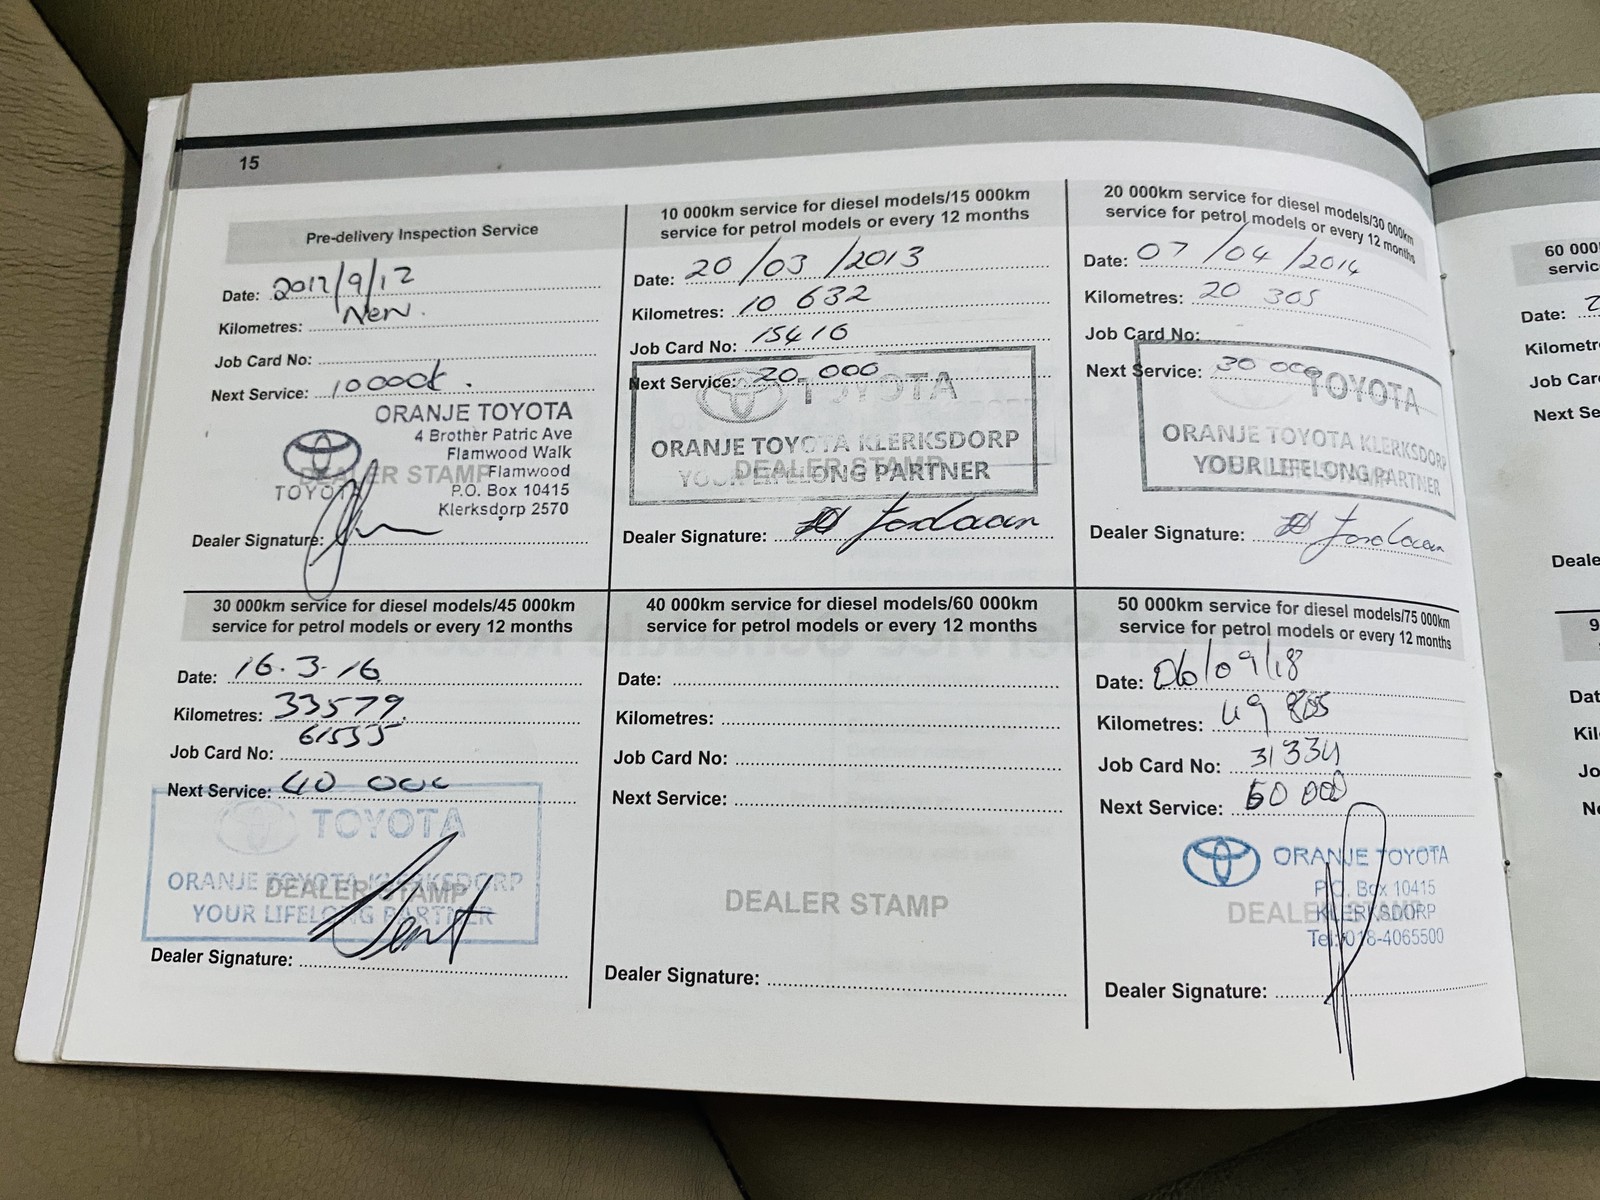 15
Pre-delivery Inspection Service
Date: 2012/9/12
Kilometres: New.
Job Card No:
Next Service: 10000k.
ORANJE TOYOTA
4 Brother Patric Ave
Flamwood Walk
Flamwood
P.O. Box 10415
Klerksdorp 2570
TOYOTA
DEALER STAMP
Dealer Signature:
10 000km service for diesel models/15 000km
service for petrol models or every 12 months
Date: 20/03/2013
Kilometres: 10 632
Job Card No: 15416
Next Service: 20 000
TOYOTA
ORANJE TOYOTA KLERKSDORP
YOUR LIFELONG PARTNER
DEALER STAMP
Dealer Signature:
20 000km service for diesel models/30 000km
service for petrol models or every 12 months
Date: 07/04/2014
Kilometres: 20 305
Job Card No:
Next Service: 30 000
TOYOTA
ORANJE TOYOTA KLERKSDORP
YOUR LIFELONG PARTNER
Dealer Signature:
30 000km service for diesel models/45 000km
service for petrol models or every 12 months
Date: 16.3.16
Kilometres: 33579
Job Card No: 61555
Next Service: 40 000
TOYOTA
ORANJE TOYOTA KLERKSDORP
DEALER STAMP
YOUR LIFELONG PARTNER
Dealer Signature:
40 000km service for diesel models/60 000km
service for petrol models or every 12 months
Date:
Kilometres:
Job Card No:
Next Service:
DEALER STAMP
Dealer Signature:
50 000km service for diesel models/75 000km
service for petrol models or every 12 months
Date: 06/09/18
Kilometres: 49 805
Job Card No: 31334
Next Service: 60 000
ORANJE TOYOTA
P.O. Box 10415
KLERKSDORP
Tel: 018-4065500
DEALER STAMP
Dealer Signature:
60 000
servic
Date: 2
Kilometr
Job Car
Next Se
Deale
9
Dat
Kil
Jo
Ne